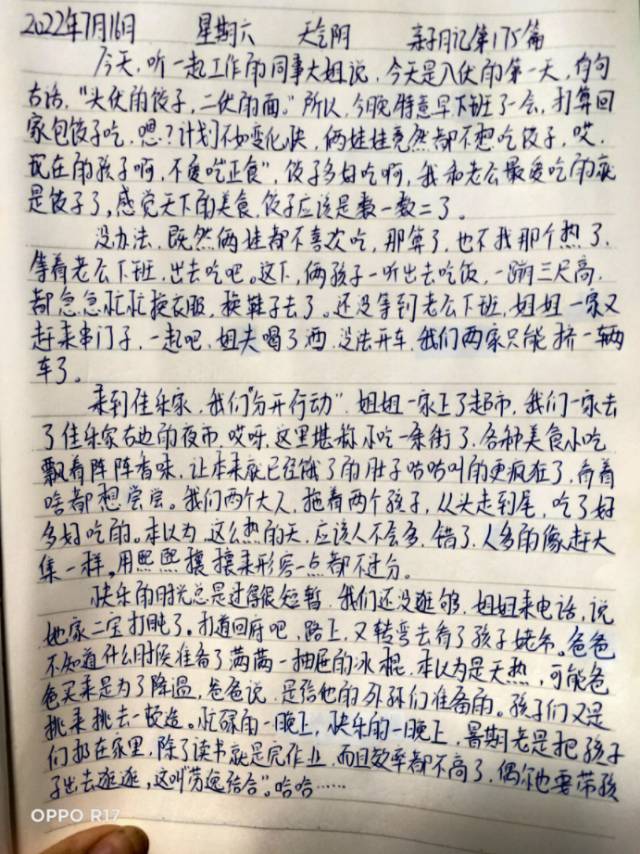 2022年7月16日 星期六 天气阴 亲子日记第175篇
今天,听一起工作的同事大姐说,今天是入伏的第一天,有句
古话,"头伏的饺子,二伏的面。"所以,今晚特意早下班了一会,打算回
家包饺子吃,嗯?计划不如变化快,俩娃娃竟然都不想吃饺子,哎,
现在的孩子啊,不爱吃正食",饺子多好吃啊,我和老公最爱吃的就
是饺子了,感觉天下的美食,饺子应该是数一数二了。
没办法,既然俩娃都不喜欢吃,那算了,也不找那个热了,
等着老公下班,出去吃吧。这下,俩孩子一听出去吃饭,一蹦三尺高,
都急急忙忙换衣服,换鞋子去了。还没等到老公下班,姐姐一家又
赶来串门子,一起吧,姐夫喝了酒,没法开车,我们两家只能挤一辆
车了。
来到佳乐家,我们"分开行动",姐姐一家上了超市,我们一家去
了佳乐家右边的夜市,哎呀,这里堪称小吃一条街了,各种美食小吃
飘着阵阵香味,让本来就已经饿了的肚子咕咕叫的更疯狂了,看着
啥都想尝尝。我们两个大人,拖着两个孩子,从头走到尾,吃了好
多好吃的。本以为,这么热的天,应该人不会多,错了,人多的像赶大
集一样,用熙熙攘攘来形容一点都不过分。
快乐的时光总是过得很短暂,我们还没逛够,姐姐来电话,说
她家二宝打盹了。打道回府吧,路上,又转弯去看了孩子姥爷。爸爸
不知道什么时候准备了满满一抽屉的冰棍,本以为是天热,可能爸
爸买来是为了降温,爸爸说,是给他的外孙们准备的。孩子们又是
挑来挑去一顿造。忙碌的一晚上,快乐的一晚上,暑期老是把孩子
们扔在家里,除了读书就是完作业,而且效率都不高了,偶尔也要带孩
子出去逛逛,这叫"劳逸结合"。哈哈……
OPPO R17